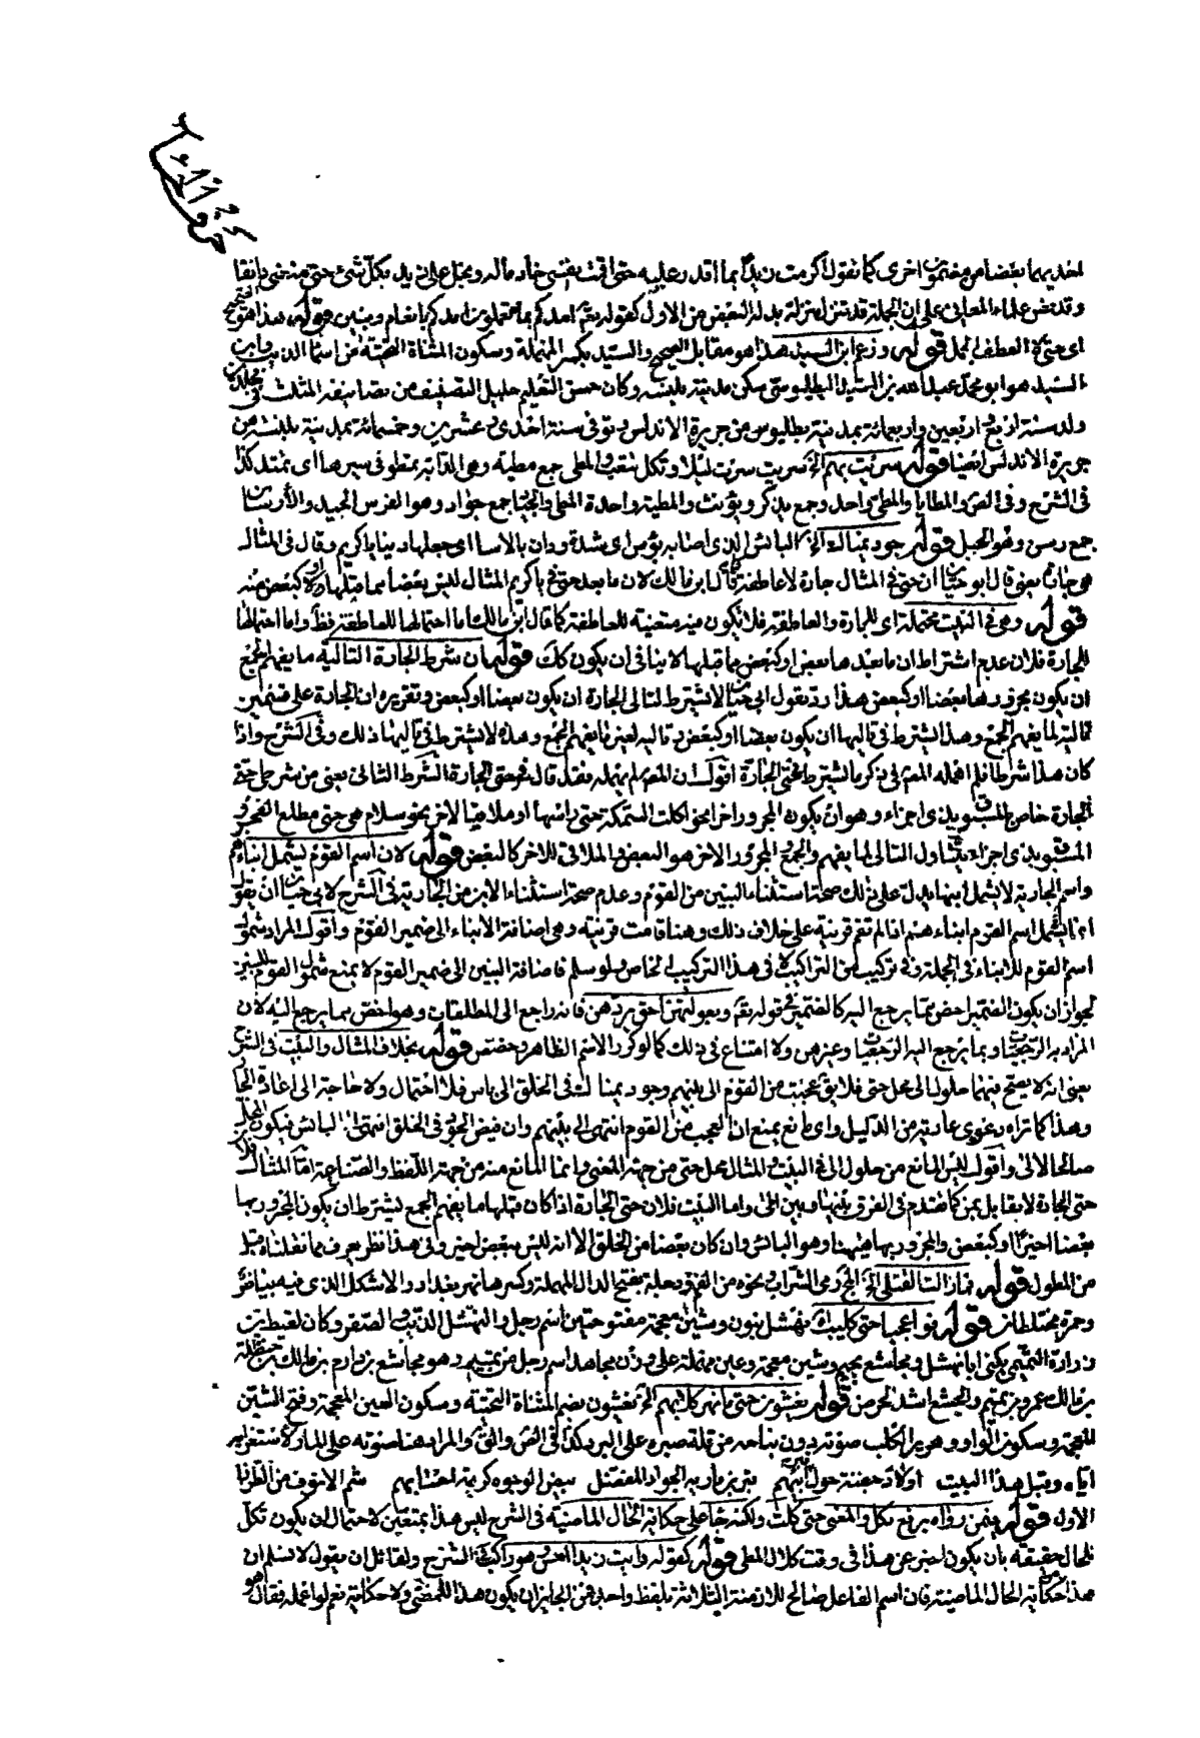 احديهما بعضا من مضمون اخرى كما تقول اكرمت زيدا بما اقدر عليه حتى اقمت نفسى خادما له وبخل على زيد بكل شئ حتى منعنى دانقا
وقد نص علماء المعانى على ان الجملة قد تنزل منزلة بدل البعض من الاول كقوله تع امدكم بما تعلمون امدكم بانعام وبنين قوله هذا هو الصحيح
اى حتى العطف الجمل قوله وزعم ابن السيد هذا هو مقابل الصحيح والسيد بكسر المهملة وسكون المثناة التحتية من اسماء الذئب وابن
السيد هو ابو محمد عبد الله بن السيد البطليوسى سكن مدينة بلنسية وكان حسن التعليم جليل التصنيف من تصانيفه المثلث فى مجلدين
ولد سنة اربع اربعين واربعمائة بمدينة بطليوس من جزيرة الاندلس وتوفى سنة احدى وعشرين وخمسمائة بمدينة بلنسية من
جزيرة الاندلس ايضا قوله سريت بهم الخ سريت سرت ليلا وتكل تتعب والمطى جمع مطية وهى الدابة تمطو فى سيرها اى تمتد كذا
فى الشرح وفى الص والمطايا والمطى واحد وجمع يذكر ويؤنث والمطية واحدة المطى والجياد جمع جواد وهو الفرس الجيد والأرسان
جمع رسن وهو الحبل قوله جود يمناك الخ البائس الذى اصابه بؤس اى شدة ودان بالاساءة اى جعلها دينا يا كريم وقال فى المثال
هى جارة يعنى قال ابو حيان ان حتى فى المثال جارة لا عاطفة قال ابن مالك لان ما بعد حتى فى يا كريم المثال ليس بعضا مما قبلها ولا كبعض منه
قوله وهى فى البيت محتملة اى للجارة والعاطفة فلا تكون فيه متعينة للعاطفة كما قال ابن مالك اما احتمالها للعاطفة فظ واما احتمالها
للجارة فلان عدم اشتراط ان ما بعدها بعض او كبعض مما قبلها لا ينافى ان يكون كك قوله ان شرط الجارة التالية ما يفهم الجمع
ان يكون مجرورها بعضا او كبعض هذا رد بقول ابى حيان لا يشترط تالى الجارة ان يكون بعضا او كبعض وتقريره ان الجارة على قسمين
تالية لما يفهم الجمع وهذا يشترط فى تاليها ان يكون بعضا او كبعض وتالية لغير ما يفهم الجمع وهذه لا يشترط فى تاليها ذلك وفى الشرح واذا
كان هذا شرطا فلم اهمله المص فى ذكر ما يشترط لحتى الجارة اقول ان المص لم يهمله فقد قال فى حتى الجارة الشرط الثانى يعنى من شرطى حتى
الجارة خاص بالمسبوق بذى اجزاء وهو ان يكون المجرور اخرا نحو اكلت السمكة حتى رأسها او ملاقيا لاخر نحو سلام هى حتى مطلع الفجر
المسبوق بذى اجزاء يتناول التالى لما يفهم الجمع والمجرور الاخر هو البعض والملاقى للاخر كالبعض قوله لان اسم القوم يشمل ابناءهم
واسم الجارية لا يشمل ابنها يدل على ذلك صحة استثناء البنين من القوم وعدم صحة استثناء الابن من الجارية وفى الشرح لابى حيان ان يقول
انما يشمل اسم القوم ابناءهم اذا لم تقم قرينة على خلاف ذلك وهنا قامت قرينة وهى اضافة الابناء الى ضمير القوم واقول المراد شمول
اسم القوم للابناء فى الجملة وفى تركيب من التراكيب لا فى هذا التركيب الخاص ولو سلم فاضافة البنين الى ضمير القوم لا يمنع شمول القوم للبنين
لجواز ان يكون الضمير اخص مما يرجع اليه كالضمير فى قوله تع وبعولتهن احق بردهن فانه راجع الى المطلقات وهو اخص مما يرجع اليه لان
المراد به الرجعيات وبما يرجع اليه الرجعيات وغيرهن ولا امتناع فى ذلك كما لو كرر الاسم الظاهر وخصص قوله بخلاف المثال والبيت فى الشرح
يعنى انه لا يصح فيهما حلول الى محل حتى فلا يق عجبت من القوم الى بنيهم وجود يمناك فى الخلق الى بائس فلا احتمال ولا حاجة الى اعادة الجار
وهذا كما تراه دعوى عارية من الدليل واى مانع يمنع ان العجب من القوم انتهى الى بنيهم وان فيض الجود فى الخلق انتهى الى البائس فيكون المحل
صالحا لالى واقول ليس المانع من حلول الى فى البيت والمثال محل حتى من جهة المعنى وانما المانع منه من جهة اللفظ والصناعة اما المثال فلان
حتى الجارة لا يقابل بمن كما تقدم فى الفرق بينها وبين الى واما البيت فلان حتى الجارة اذا كان قبلها ما يفهم الجمع يشترط ان يكون المجرور بها
بعضا اخيرا او كبعض والمجرور بها هيهنا وهو البائس وان كان بعضا من الخلق الا انه ليس ببعض اخير وفى هذا نظر يعرف مما نقلناه قبل
من المطول قوله فما زالت القتلى الخ المج رمى الشراب ونحوه من الفم ودجلة بفتح الدال المهملة وكسرها نهر بغداد والاشكل الذى فيه بياض
وحمرة مختلطان قوله فوا عجبا حتى كليب الخ نهشل بنون وشين معجمة مفتوحتين اسم رجل والنهشل الذئب والصقر وكان لقيط بن
زرارة التميمى يكنى ابا نهشل ومجاشع بجيم وشين معجمة وعين مهملة على وزن مجاهد اسم رجل من تميم وهو مجاشع بن دارم بن مالك بن حنظلة
بن مالك عمرو بن تميم والجشع اشد الحرص قوله يغشون حتى ما تهر كلابهم الخ يغشون بضم المثناة التحتية وسكون الغين المعجمة وفتح الشين
المعجمة وسكون الواو وهرير الكلب صوته دون نباحه من قلة صبره على البرد كذا فى الص والق والمراد هنا صوته على المار لاستغرابه
اياه وقبل هذا البيت اولاد جفنة حول قبر ابيهم قبر بن مارية الجواد المفضل بيض الوجوه كريمة احسابهم شم الانوف من الطراز
الاول قوله فمن رواه برفع تكل والمعنى حتى كلت ولكنه جاء على حكاية الحال الماضية فى الشرح ليس هذا بمتعين لاحتمال ان يكون تكل
للحال حقيقة بان يكون اخبر عن هذا فى وقت كلال المطى قوله كقوله رايت زيدا امس وهو راكب الشرح ولقائل ان يقول لا نسلم ان
هذا من حكاية الحال الماضية فان اسم الفاعل صالح للازمنة الثلاثة بلفظ واحد فمن الجايز ان يكون هذا للمضى ولا حكاية نعم لو اعمله فقال وهو